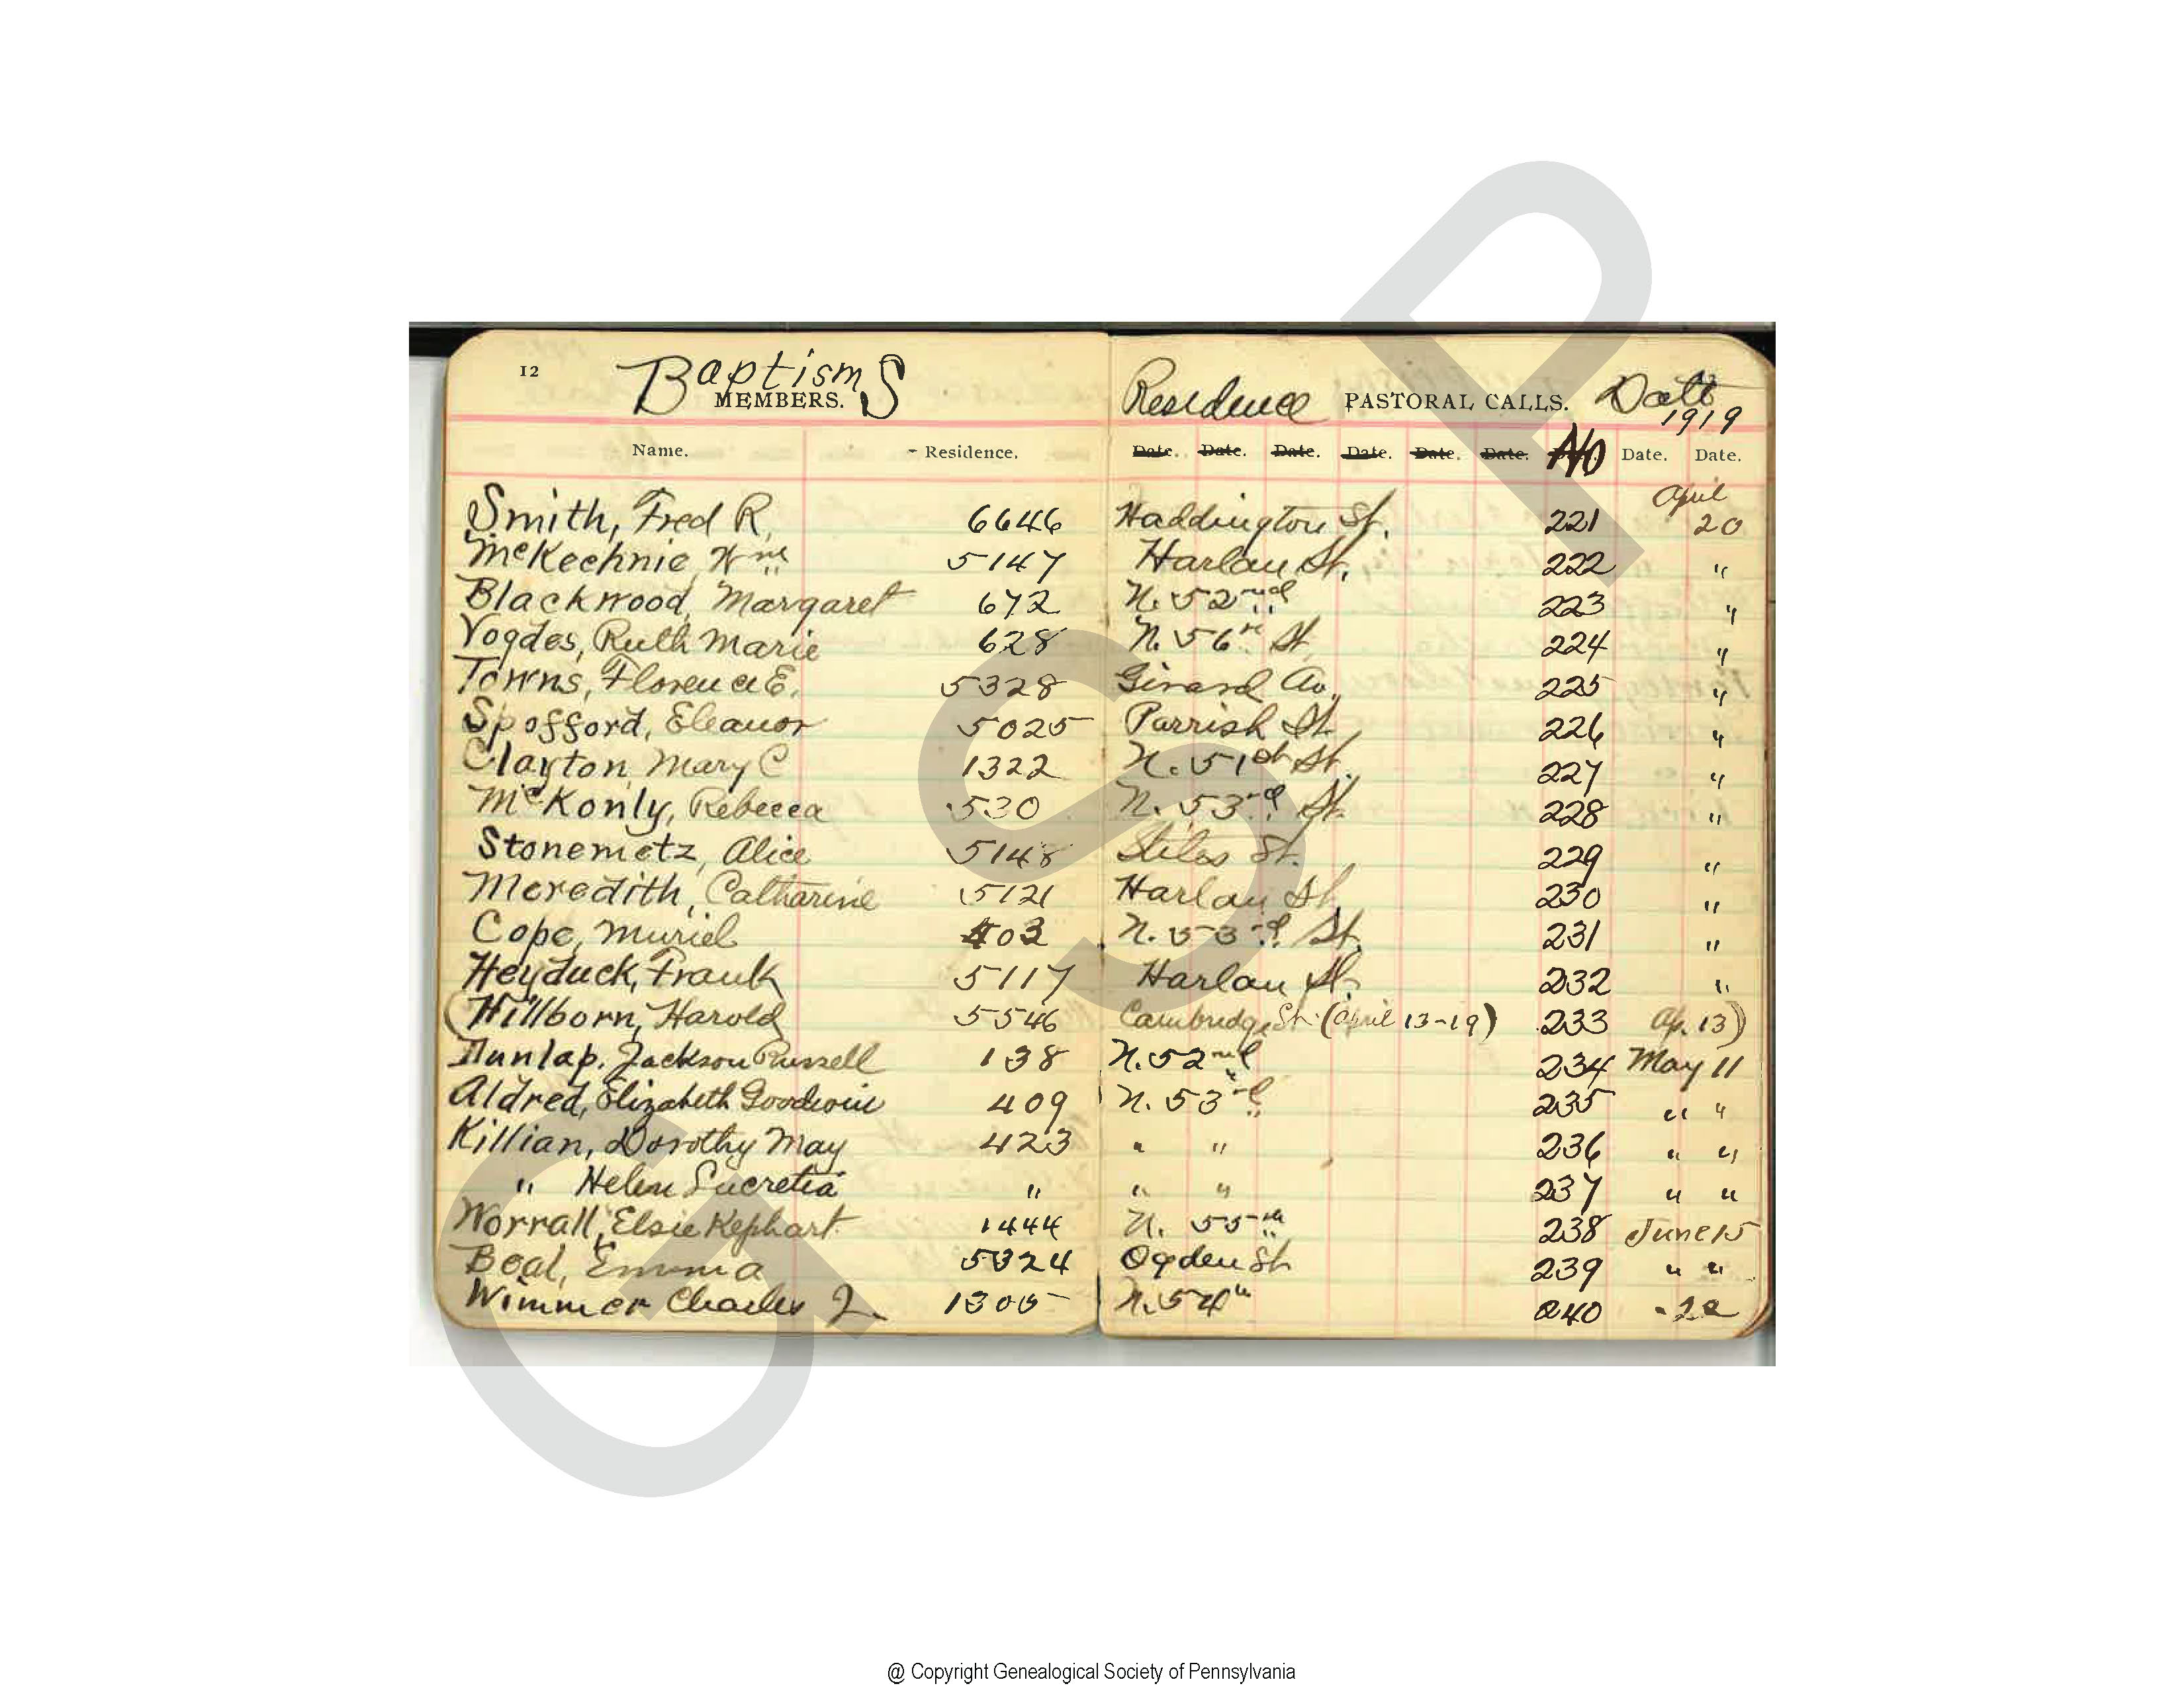 12 Baptisms
MEMBERS.
Residence PASTORAL CALLS. Date
1919
Name. Residence. Date. Date. Date. Date. Date. Date. No Date. Date.
April
Smith, Fred R. 6646 Haddington St. 221 20
McKechnie, Wm 5147 Harlan St. 222 "
Blackwood, Margaret 672 N. 52nd 223 "
Vogdes, Ruth Marie 628 N. 56th St 224 "
Towns, Florence E. 5328 Girard Av. 225 "
Spofford, Eleanor 5025 Parrish St. 226 "
Clayton, Mary C 1322 N. 51st St. 227 "
McKonly, Rebecca 530 N. 53rd St. 228 "
Stonemetz, Alice 5148 Stiles St. 229 "
Meredith, Catharine 5121 Harlan St. 230 "
Cope, Muriel 403 N. 53rd St. 231 "
Heyduck, Frank 5117 Harlan St. 232 "
(Hillborn, Harold 5546 Cambridge St. (April 13-19) 233 Ap. 13)
Dunlap, Jackson Russell 138 N. 52nd 234 May 11
Aldred, Elizabeth Goodwin 409 N. 53rd 235 " "
Killian, Dorothy May 423 " " 236 " "
" Helen Lucretia " " " 237 " "
Worrall, Elsie Kephart 1444 N. 55th 238 June 15
Beal, Emma 5324 Ogden St. 239 " "
Wimmer Charles J. 1305 N. 54th 240 " 22
GSP
@ Copyright Genealogical Society of Pennsylvania